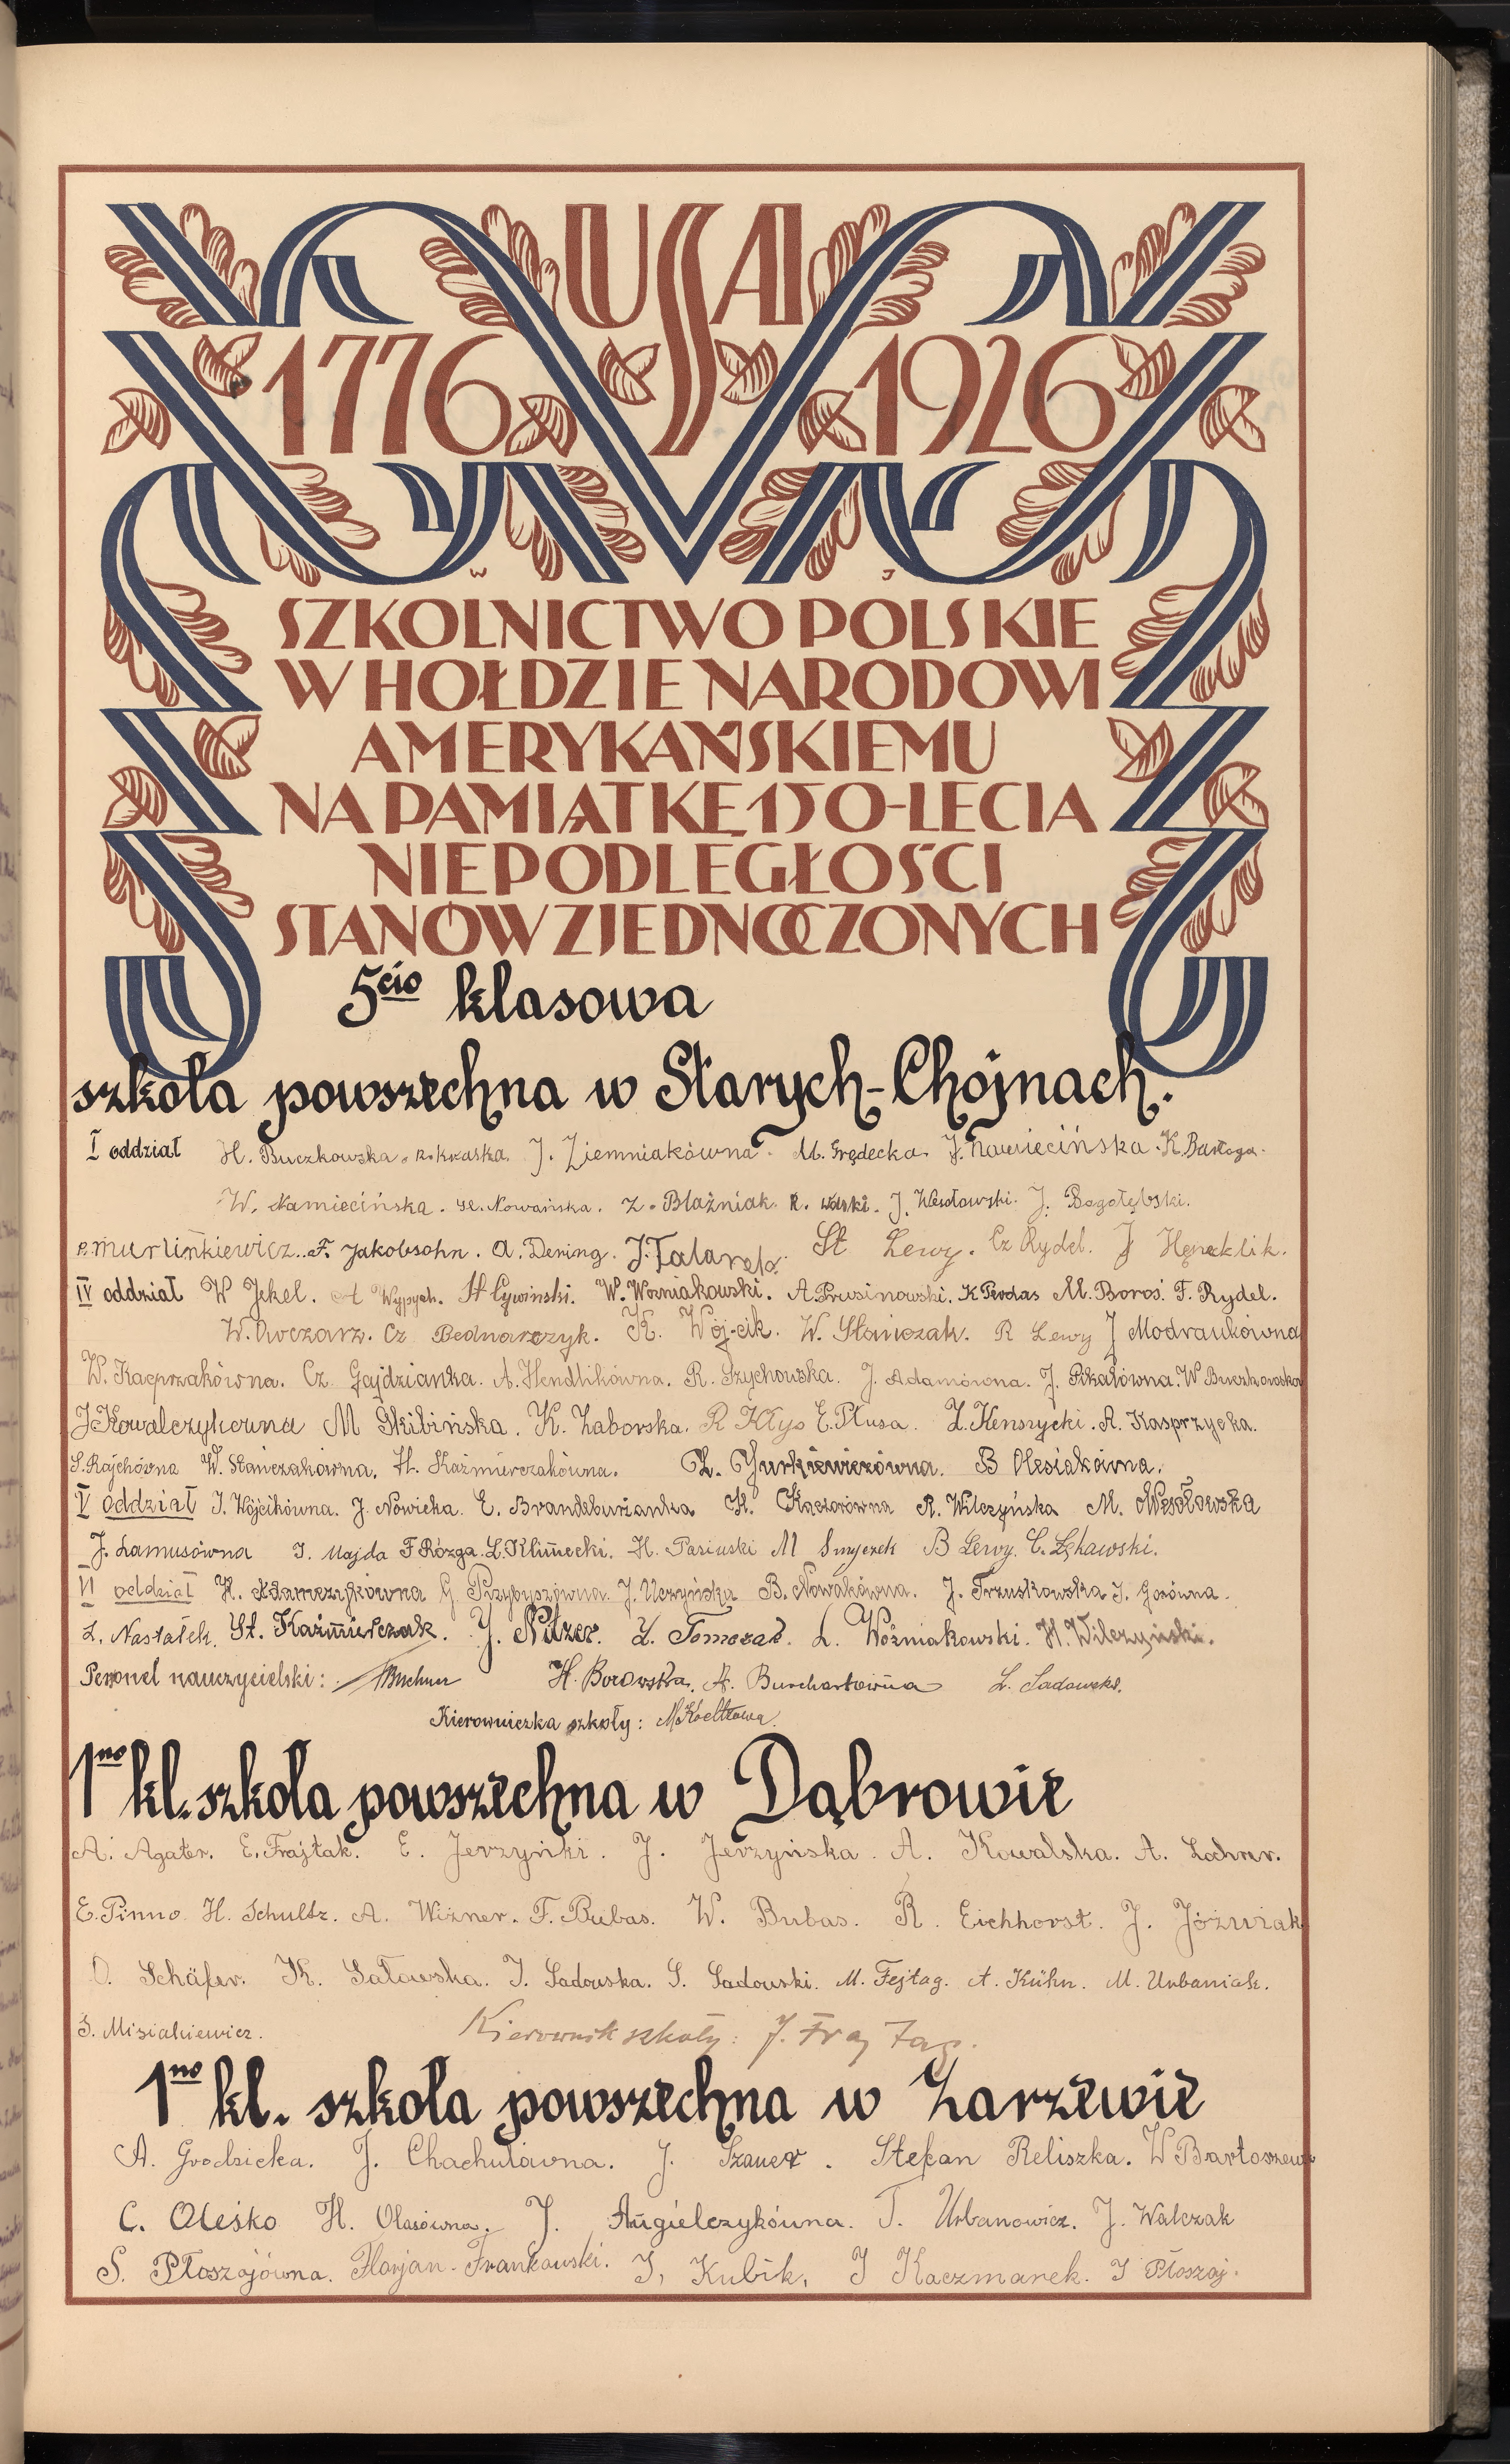 USA
1776 1926
W J
SZKOLNICTWO POLSKIE
W HOŁDZIE NARODOWI
AMERYKAŃSKIEMU
NA PAMIĄTKĘ 150-LECIA
NIEPODLEGŁOŚCI
STANÓW ZJEDNOCZONYCH
5cio klasowa
szkoła powszechna w Starych-Chojnach.
I oddział H. Buczkowska. R. Kraska. J. Ziemniakówna. M. Grędecka. J. Namiecińska. K. Bartoga.
W. Namiecińska. H. Nowańska. Z. Błaźniak. R. Wolski. J. Wesołowski. J. Bogołębski.
P. Murlinkiewicz. F. Jakobsohn. A. Dening. J. Talarek. St Lewy. Cz Rydel. J Hęneklik.
IV oddział W Jekel. A Wypych. H Cywinski. W. Woźniakowski. A. Prusinowski. K Perdas M. Boroś. F. Rydel.
W. Owczarz. Cz Bednarczyk. K. Wójcik. W. Stańczak. R Lewy J Modraukówna
W. Kacprzakówna. Cz. Gajdzianka. A. Hendlikówna. R. Szychowska. J. Adamówna. J. Pikałówna. W Buczkowska
J Kowalczykówna M Skibińska. K. Zaborska. R Kłys E. Płusa. Z. Kenszycki. A. Kasprzycka.
S. Rajchówna W. Stańczakówna. H. Kaźmierczakówna. Z. Jurkiewiczówna. B Olesiakówna.
V oddział J. Wójcikówna. J. Nowicka. E. Brandeburianka K. Kaczorówna R. Wilczyńska M. Wesołowska
J. Lamusówna J. Majda F Rózga. L. Klimecki. H. Pasiuski M Smyczek B Lewy. C. Łękawski.
VI oddział H. Adamczykówna G Przybyszówna. J. Uczyńska B. Nowakówna. J. Trzuskowska J. Gosówna.
Z. Nastałek. St. Kaźmierczak. J. Nitzer. Z. Tomczak. L. Woźniakowski. H. Wilczyński.
Personel nauczycielski: Buchner H. Borowska. A. Burchartówna L. Sadowska.
Kierowniczka szkoły: M. Koeltzowa.
1no kl. szkoła powszechna w Dąbrowie
A. Agater. E. Frajtak. E. Jerzyńki. J. Jerzyńska. A. Kowalska. A. Lochrer.
E. Pinno H. Schultz. A. Wizner. F. Bubas. W. Bubas. R. Eichhorst. J. Józwiak
O. Schäfer. K. Sałowska. J. Sadowska. S. Sadowski. M. Fejtag. A. Kühn. M. Urbaniak.
S. Misiakiewicz. Kierownik szkoły: J. Fraj Tag.
1no kl. szkoła powszechna w Zarzewie
A. Grodzicka. J. Chachułówna. J. Szauer. Stefan Reliszka. W Bartoszew
C. Oleśko H. Olasówna. J. Augielczykówna. T. Urbanowicz. J. Walczak
S. Płoszajówna. Florjan Frankowski. J. Kubik. J Kaczmarek. J Płoszaj.